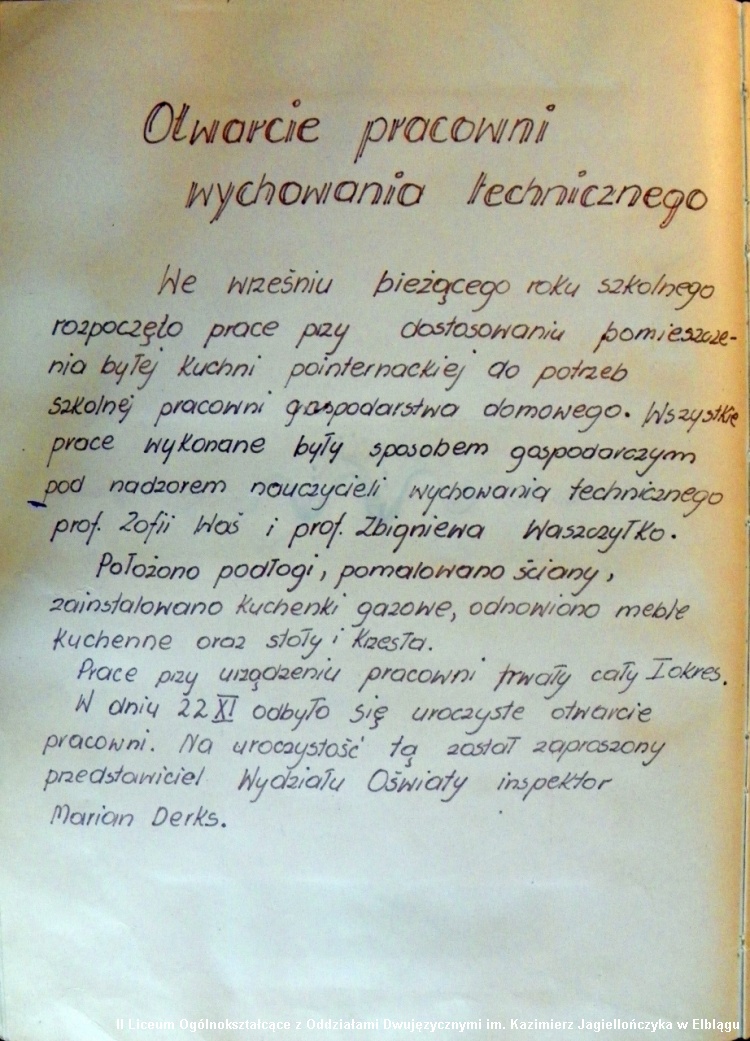 Otwarcie pracowni
wychowania technicznego
We wrześniu bieżącego roku szkolnego
rozpoczęto prace przy dostosowaniu pomieszcze-
nia byłej kuchni pointernackiej do potrzeb
szkolnej pracowni gospodarstwa domowego. Wszystkie
prace wykonane były sposobem gospodarczym
pod nadzorem nauczycieli wychowania technicznego
prof. Zofii Woś i prof. Zbigniewa Waszczyłko.
Położono podłogi, pomalowano ściany,
zainstalowano kuchenki gazowe, odnowiono meble
kuchenne oraz stoły i krzesła.
Prace przy urządzeniu pracowni trwały cały I okres.
W dniu 22 XI odbyło się uroczyste otwarcie
pracowni. Na uroczystość tą został zaproszony
przedstawiciel Wydziału Oświaty inspektor
Marian Derks.
II Liceum Ogólnokształcące z Oddziałami Dwujęzycznymi im. Kazimierz Jagiellończyka w Elblągu